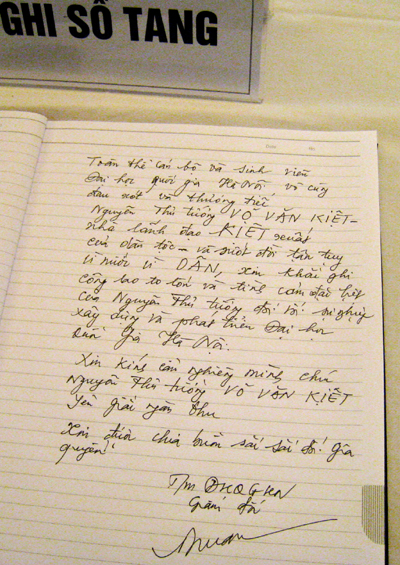 GHI SỔ TANG
Toàn thể cán bộ và sinh viên
Đại học quốc gia Hà Nội vô cùng
đau xót và thương tiếc
Nguyên Thủ tướng VÕ VĂN KIỆT-
nhà lãnh đạo KIỆT xuất
của dân tộc - và suốt đời tận tuỵ
vì nước vì DÂN, xin khắc ghi
công lao to lớn và tình cảm đặc biệt
của Nguyên Thủ tướng đối với sự nghiệp
xây dựng và phát triển Đại học
Quốc gia Hà Nội.
Xin kính cẩn nghiêng mình, chúc
Nguyên Thủ tướng VÕ VĂN KIỆT
yên giấc ngàn thu
Xin được chia buồn sâu sắc tới gia
quyến!
T/m ĐHQGHN
Giám đốc